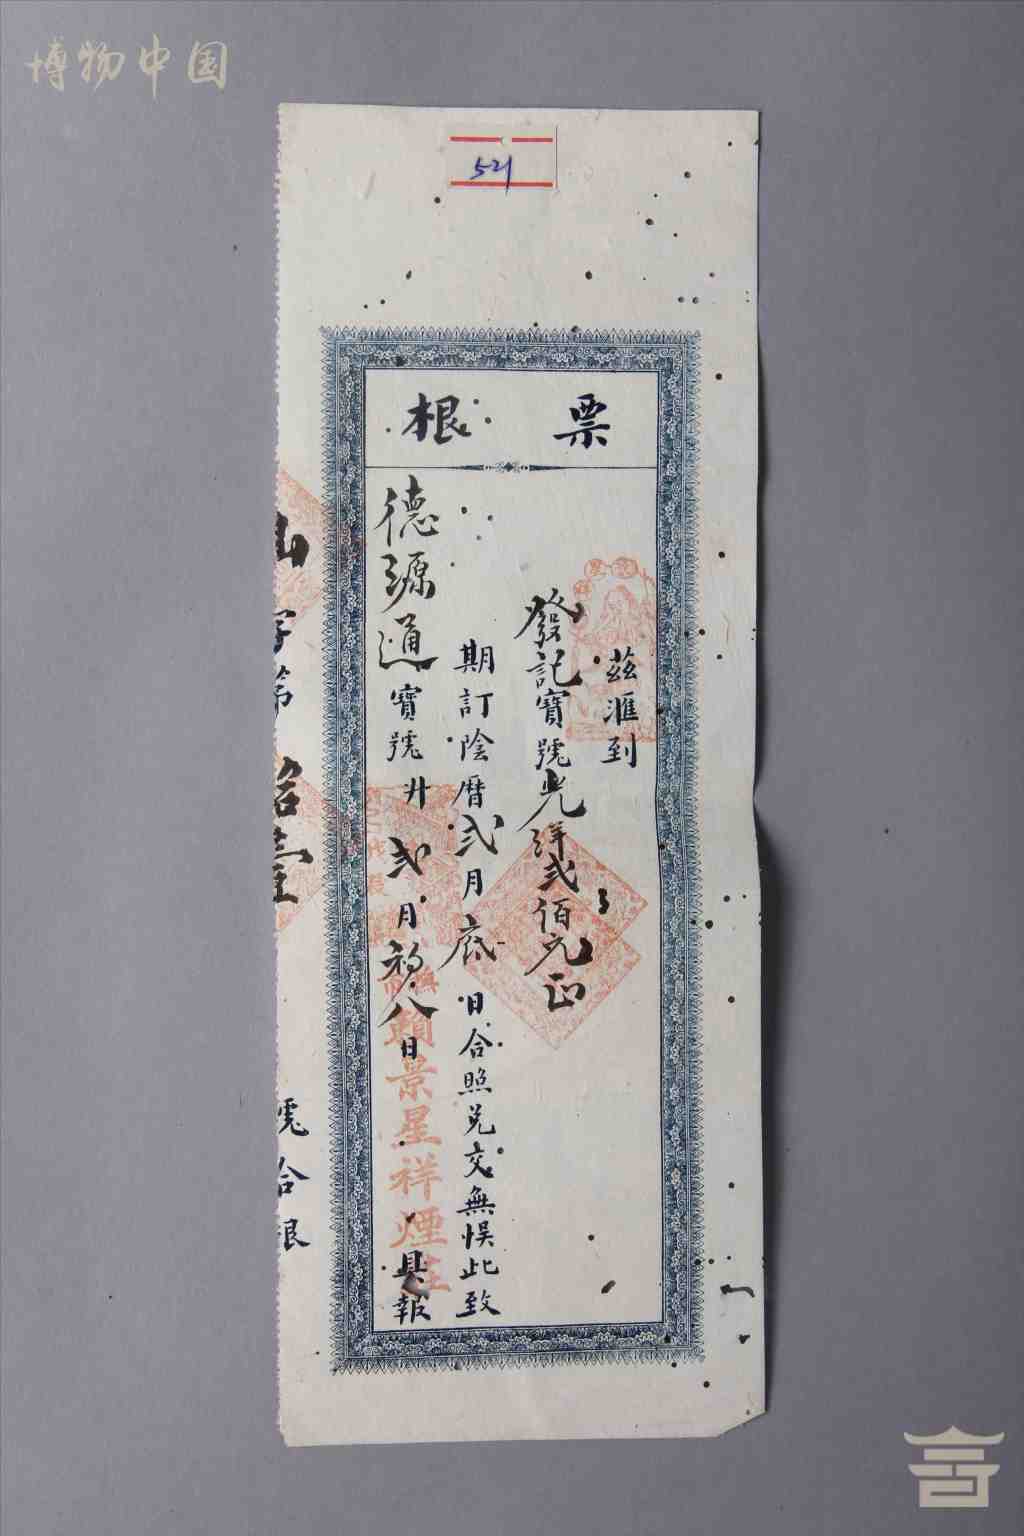 博物中国
521
票根
茲滙到
發記寶號光洋弍佰元正
期訂陰曆弍月底日合照兑交無悮此致
德源通寶號廾弍月初八日具報
賴景星祥煙庄
字第拾壹號合根